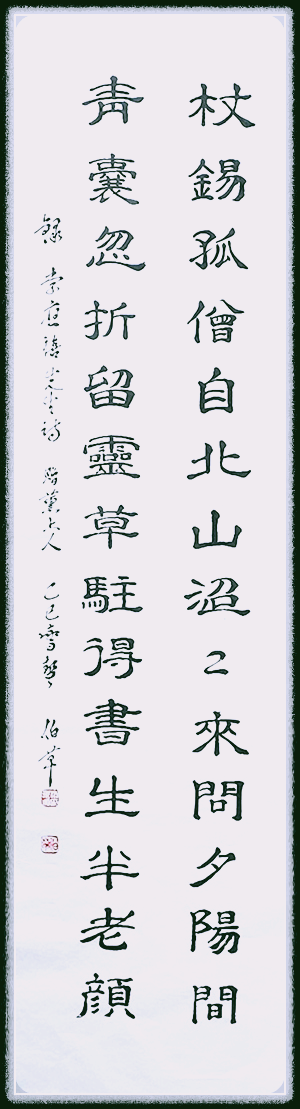 杖錫孤僧自北山迢〻來問夕陽間
青囊忽折留靈草駐得書生半老顏
錄 崇應禧先生詩 乙巳 伯華